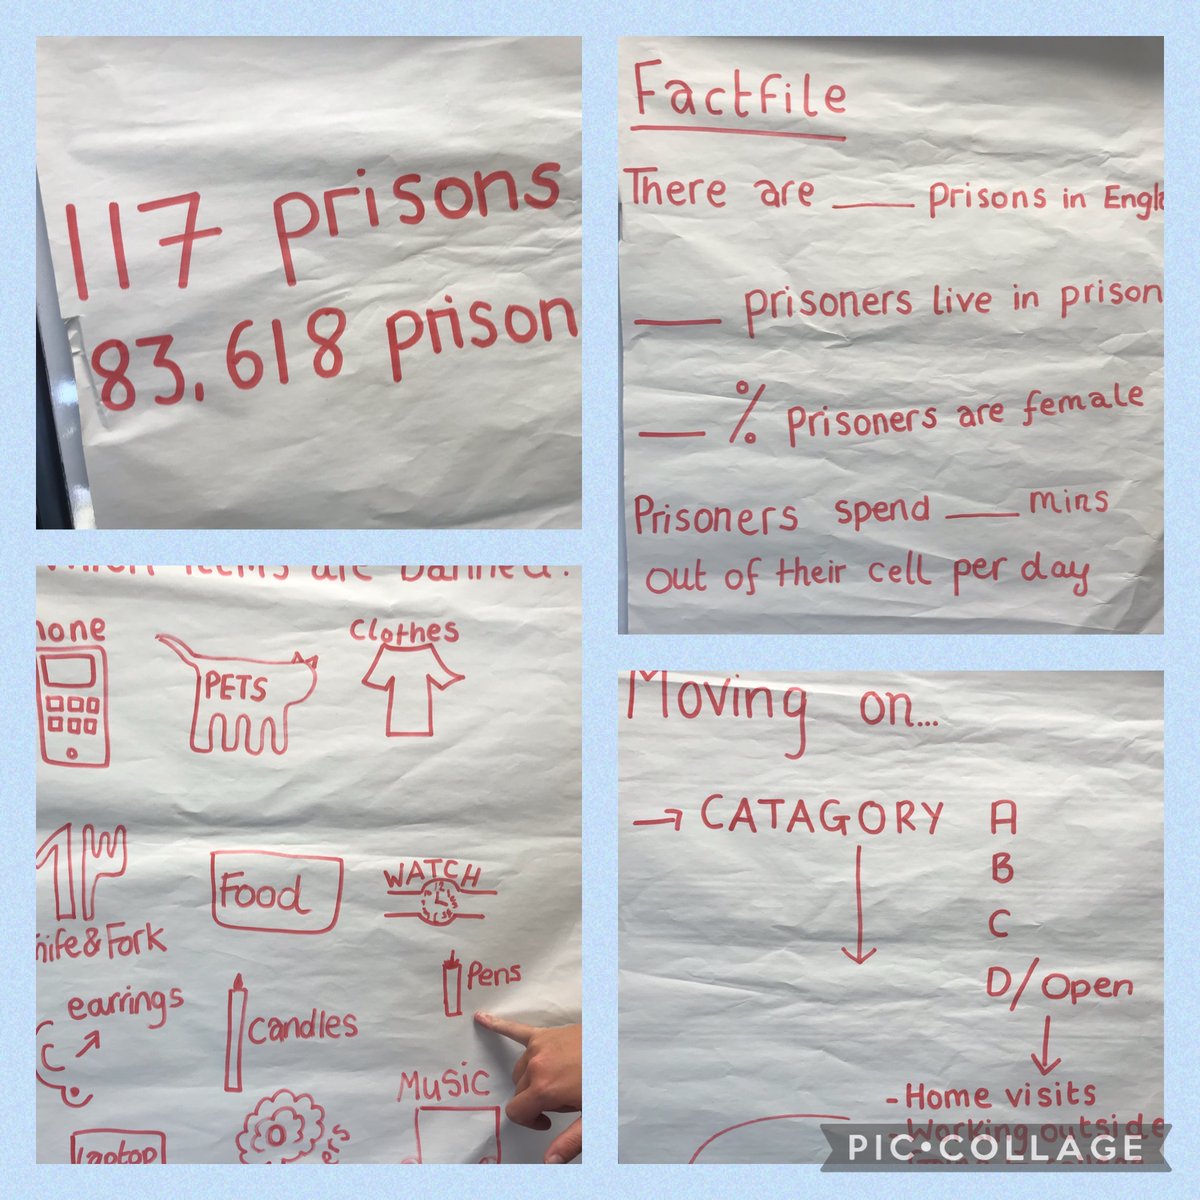 117 prisons
83,618 prison
Factfile
There are ___ prisons in Engla
___ prisoners live in prison
___ % prisoners are female
Prisoners spend ___ mins
out of their cell per day
which items are banned?
hone
PETS
Clothes
nife & Fork
Food
WATCH
earrings
Candles
Pens
Music
laptop
Moving on...
→ CATAGORY A
B
C
D/Open
- Home visits
- Working outside
PIC•COLLAGE